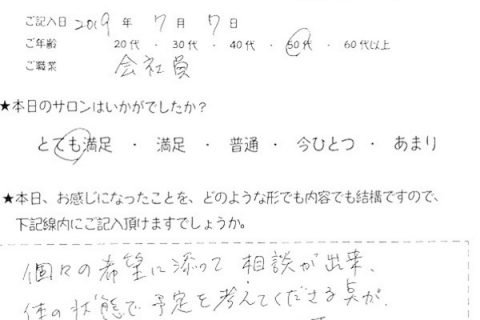 ご記入日 2019 年 7 月 7 日
ご年齢 20代 ・ 30代 ・ 40代 ・ 50代 ・ 60代以上
ご職業 会社員
★本日のサロンはいかがでしたか？
とても満足 ・ 満足 ・ 普通 ・ 今ひとつ ・ あまり
★本日、お感じになったことを、どのような形でも内容でも結構ですので、
下記線内にご記入頂けますでしょうか。
個々の希望に添って 相談が出来、
体の状態で予定を考えてくださる点が、